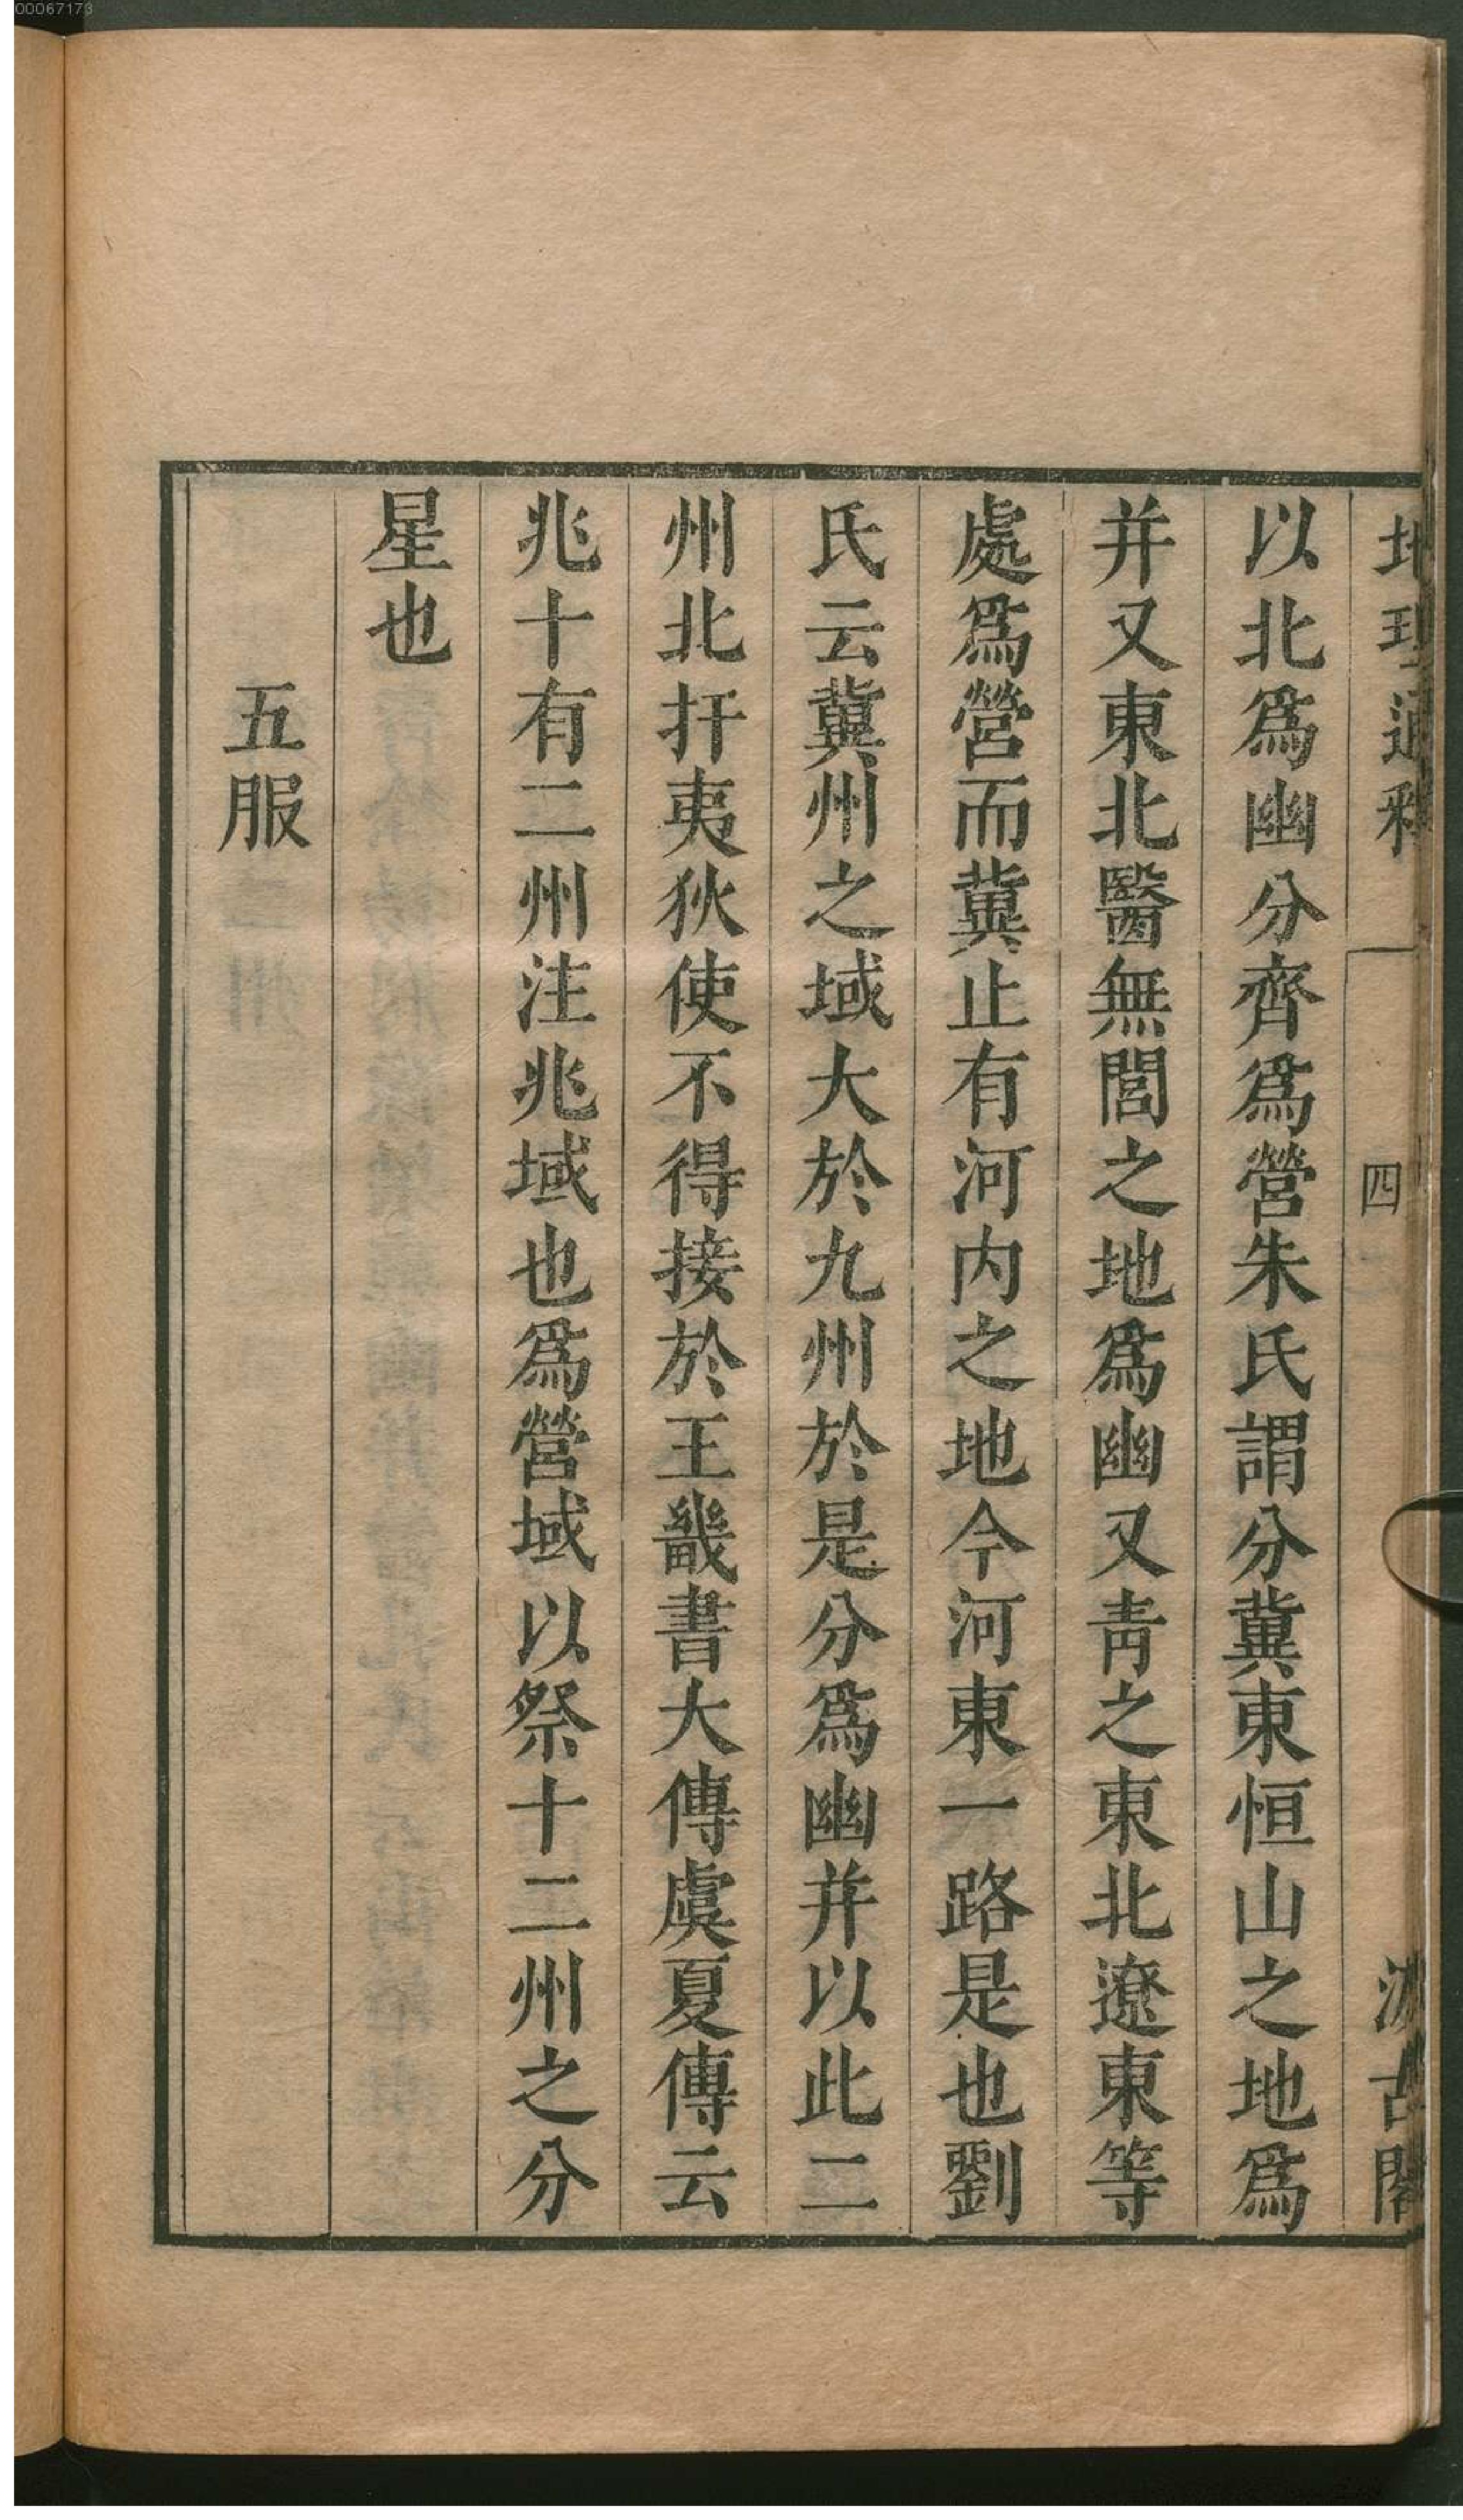 00067173
地理通釋 四 汲古閣
以北爲幽分齊爲營朱氏謂分冀東恒山之地爲
并又東北醫無閭之地爲幽又靑之東北遼東等
處爲營而冀止有河内之地今河東一路是也劉
氏云冀州之域大於九州於是分爲幽并以此二
州北扞夷狄使不得接於王畿書大傳虞夏傳云
兆十有二州注兆域也爲營域以祭十二州之分
星也
五服